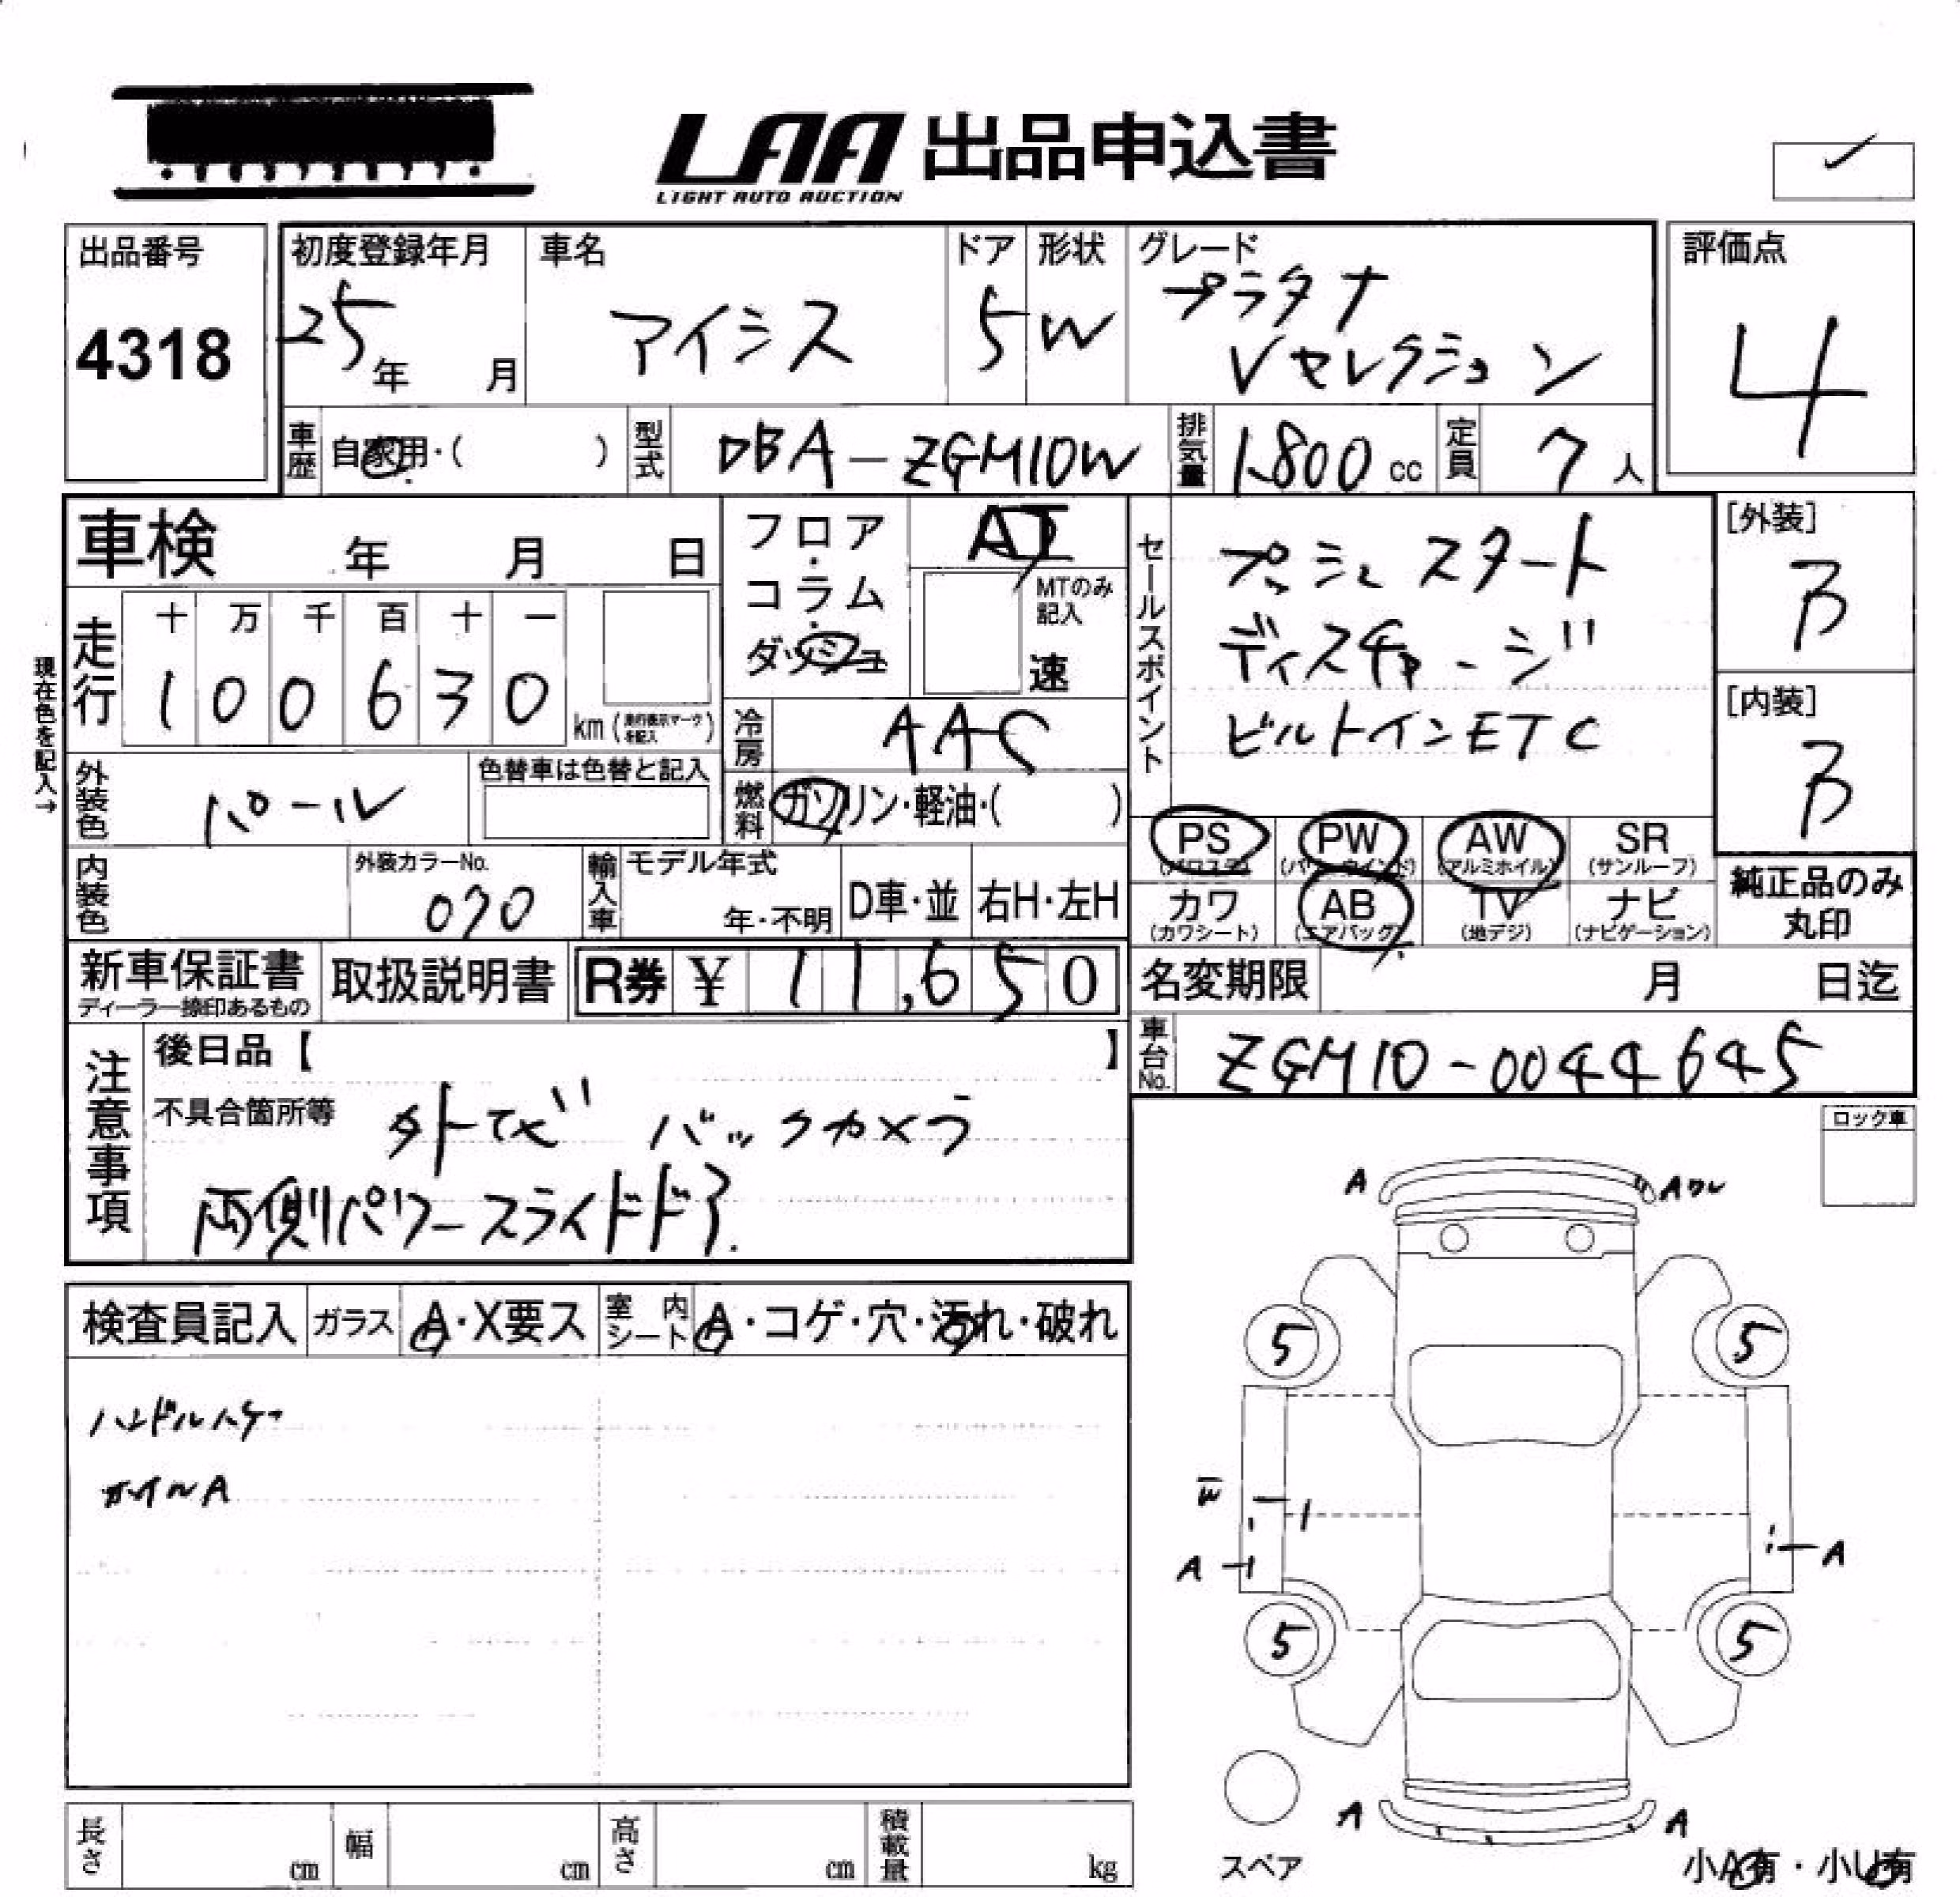 LAA 出品申込書
LIGHT AUTO AUCTION
出品番号
4318
初度登録年月
25年 月
車名
アイシス
ドア
5
形状
W
グレード
プラタナ
Vセレクション
評価点
4
車歴 自家用・( )
型式 DBA-ZGM10W
排気量 1800 cc
定員 7 人
車検 年 月 日
フロア・コラム・ダッシュ
AT
MTのみ記入
速
セールスポイント
プッシュスタート
ディスチャージ
ビルトインETC
[外装]
B
[内装]
B
現在色を記入→
走行
十 万 千 百 十 一
1 0 0 6 3 0
km (走行表示マークを記入)
冷房 AAC
外装色 パール
色替車は色替と記入
燃料 ガソリン・軽油・( )
PS (パワステ)
PW (パワーウインド)
AW (アルミホイル)
SR (サンルーフ)
カワ (カワシート)
AB (エアバッグ)
TV (地デジ)
ナビ (ナビゲーション)
純正品のみ
丸印
内装色
外装カラーNo.
070
輸入車
モデル年式
年・不明
D車・並
右H・左H
新車保証書
ディーラー捺印あるもの
取扱説明書
R券 ¥ 11,650
名変期限 月 日迄
車台No. ZGM10-0044645
注意事項
後日品【 】
不具合箇所等 外ナビ バックカメラ
両側パワースライドドア
ロック車
検査員記入
ガラス A・X要ス
室内シート A・コゲ・穴・汚れ・破れ
ハンドルハゲ
ホイルA
A
Aワレ
5
5
W
A
A
5
5
A
A
スペア
小A有・小U有
長さ cm
幅 cm
高さ cm
積載量 kg